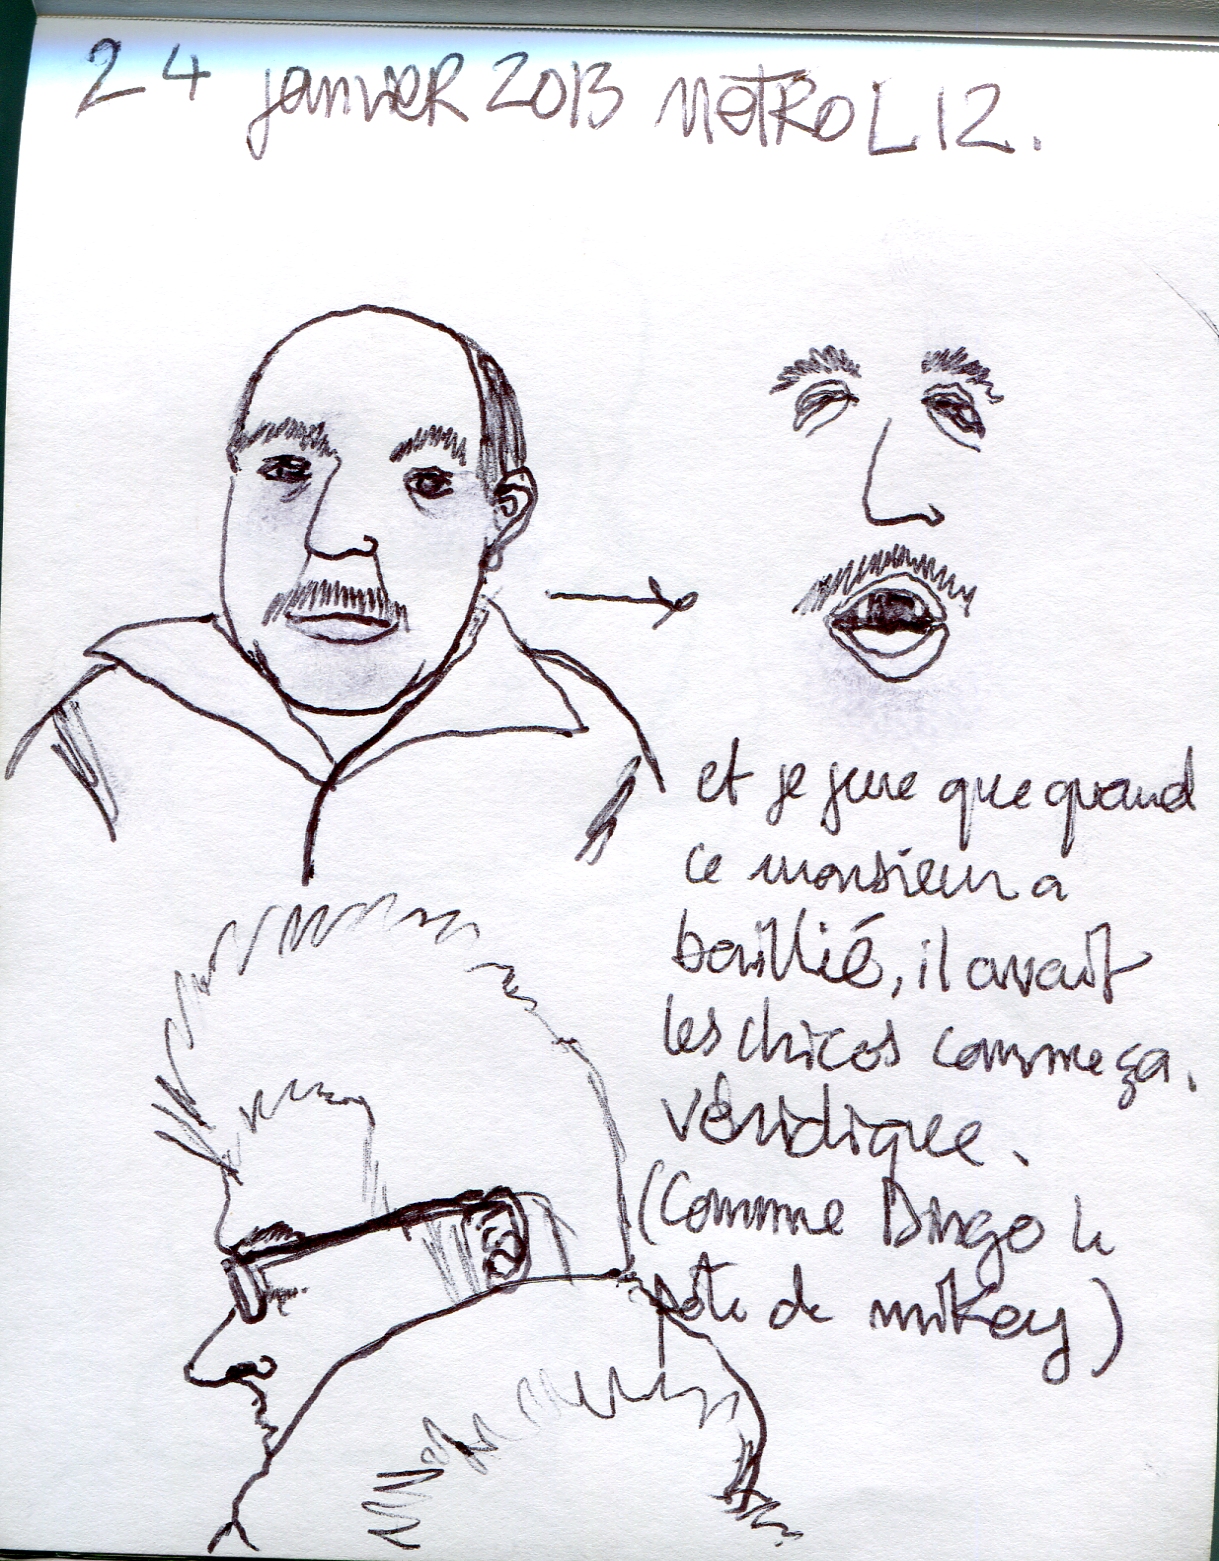 24 janvier 2013 METRO L12.
et je jure que quand
ce monsieur a
baillié, il avait
les chicos comme ça.
véridique.
(Comme Dingo le
pote de mikey)